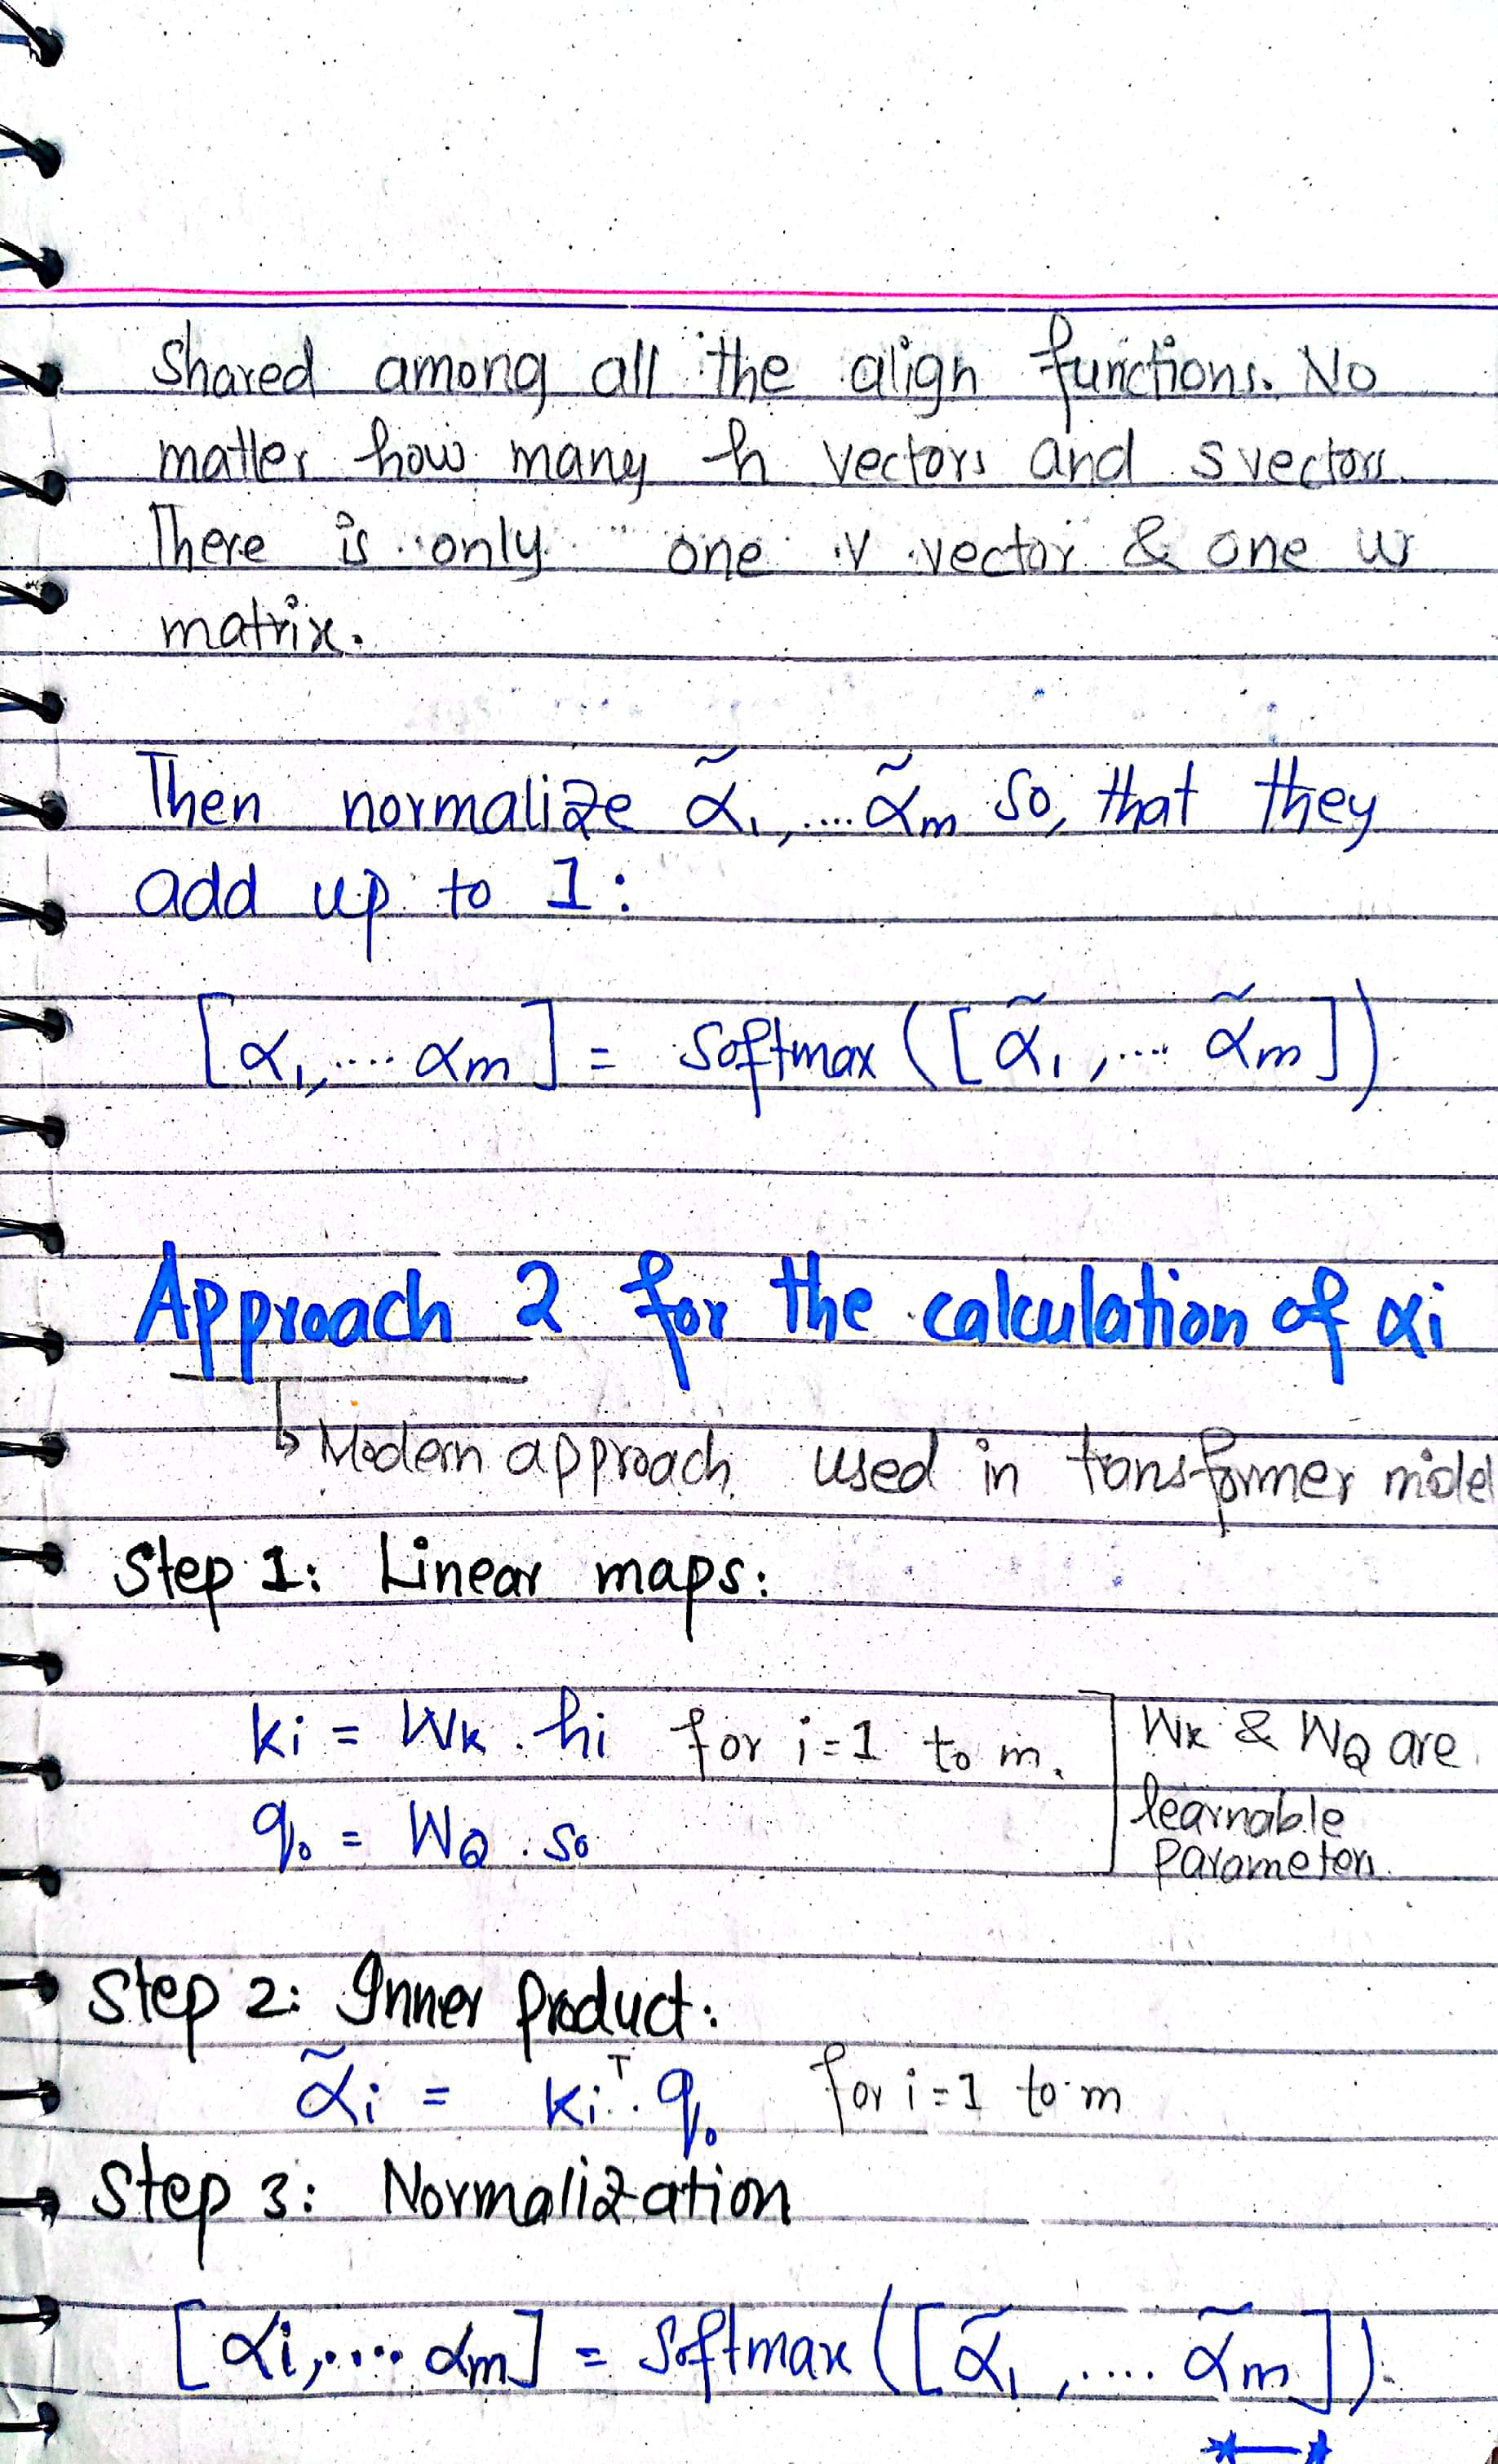 Shared among all the align functions. No
matter how many h vectors and s vectors.
There is only one v vector & one w
matrix.
Then normalize α̃₁,....α̃m so, that they
add up to 1:
[α₁,.... αm] = Softmax ([α̃₁,.... α̃m])
Approach 2 for the calculation of αi
↳ Modern approach used in transformer model
Step 1: Linear maps:
ki = Wk . hi for i=1 to m.
q₀ = WQ . s₀
Wk & WQ are
learnable
Parameters.
Step 2: Inner Product:
α̃i = kiᵀ. q₀ for i=1 to m
Step 3: Normalization
[αi,.... αm] = Softmax ([α̃₁,.... α̃m])